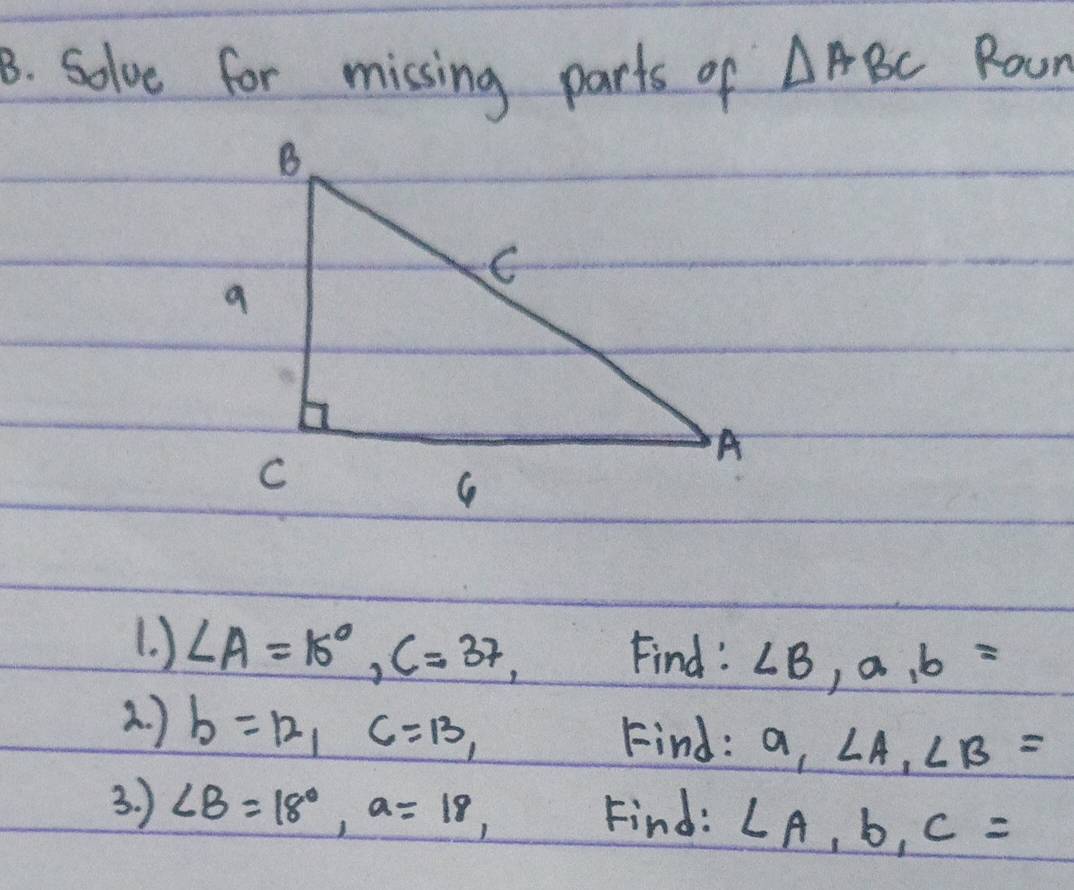 B. Solve for missing parts of △ABC Roun
B
C
a
A
C
b
1.) ∠A = 15°, C = 37, Find: ∠B, a, b =
2.) b = 12, C = 13, Find: a, ∠A, ∠B =
3.) ∠B = 18°, a = 18, Find: ∠A, b, c =